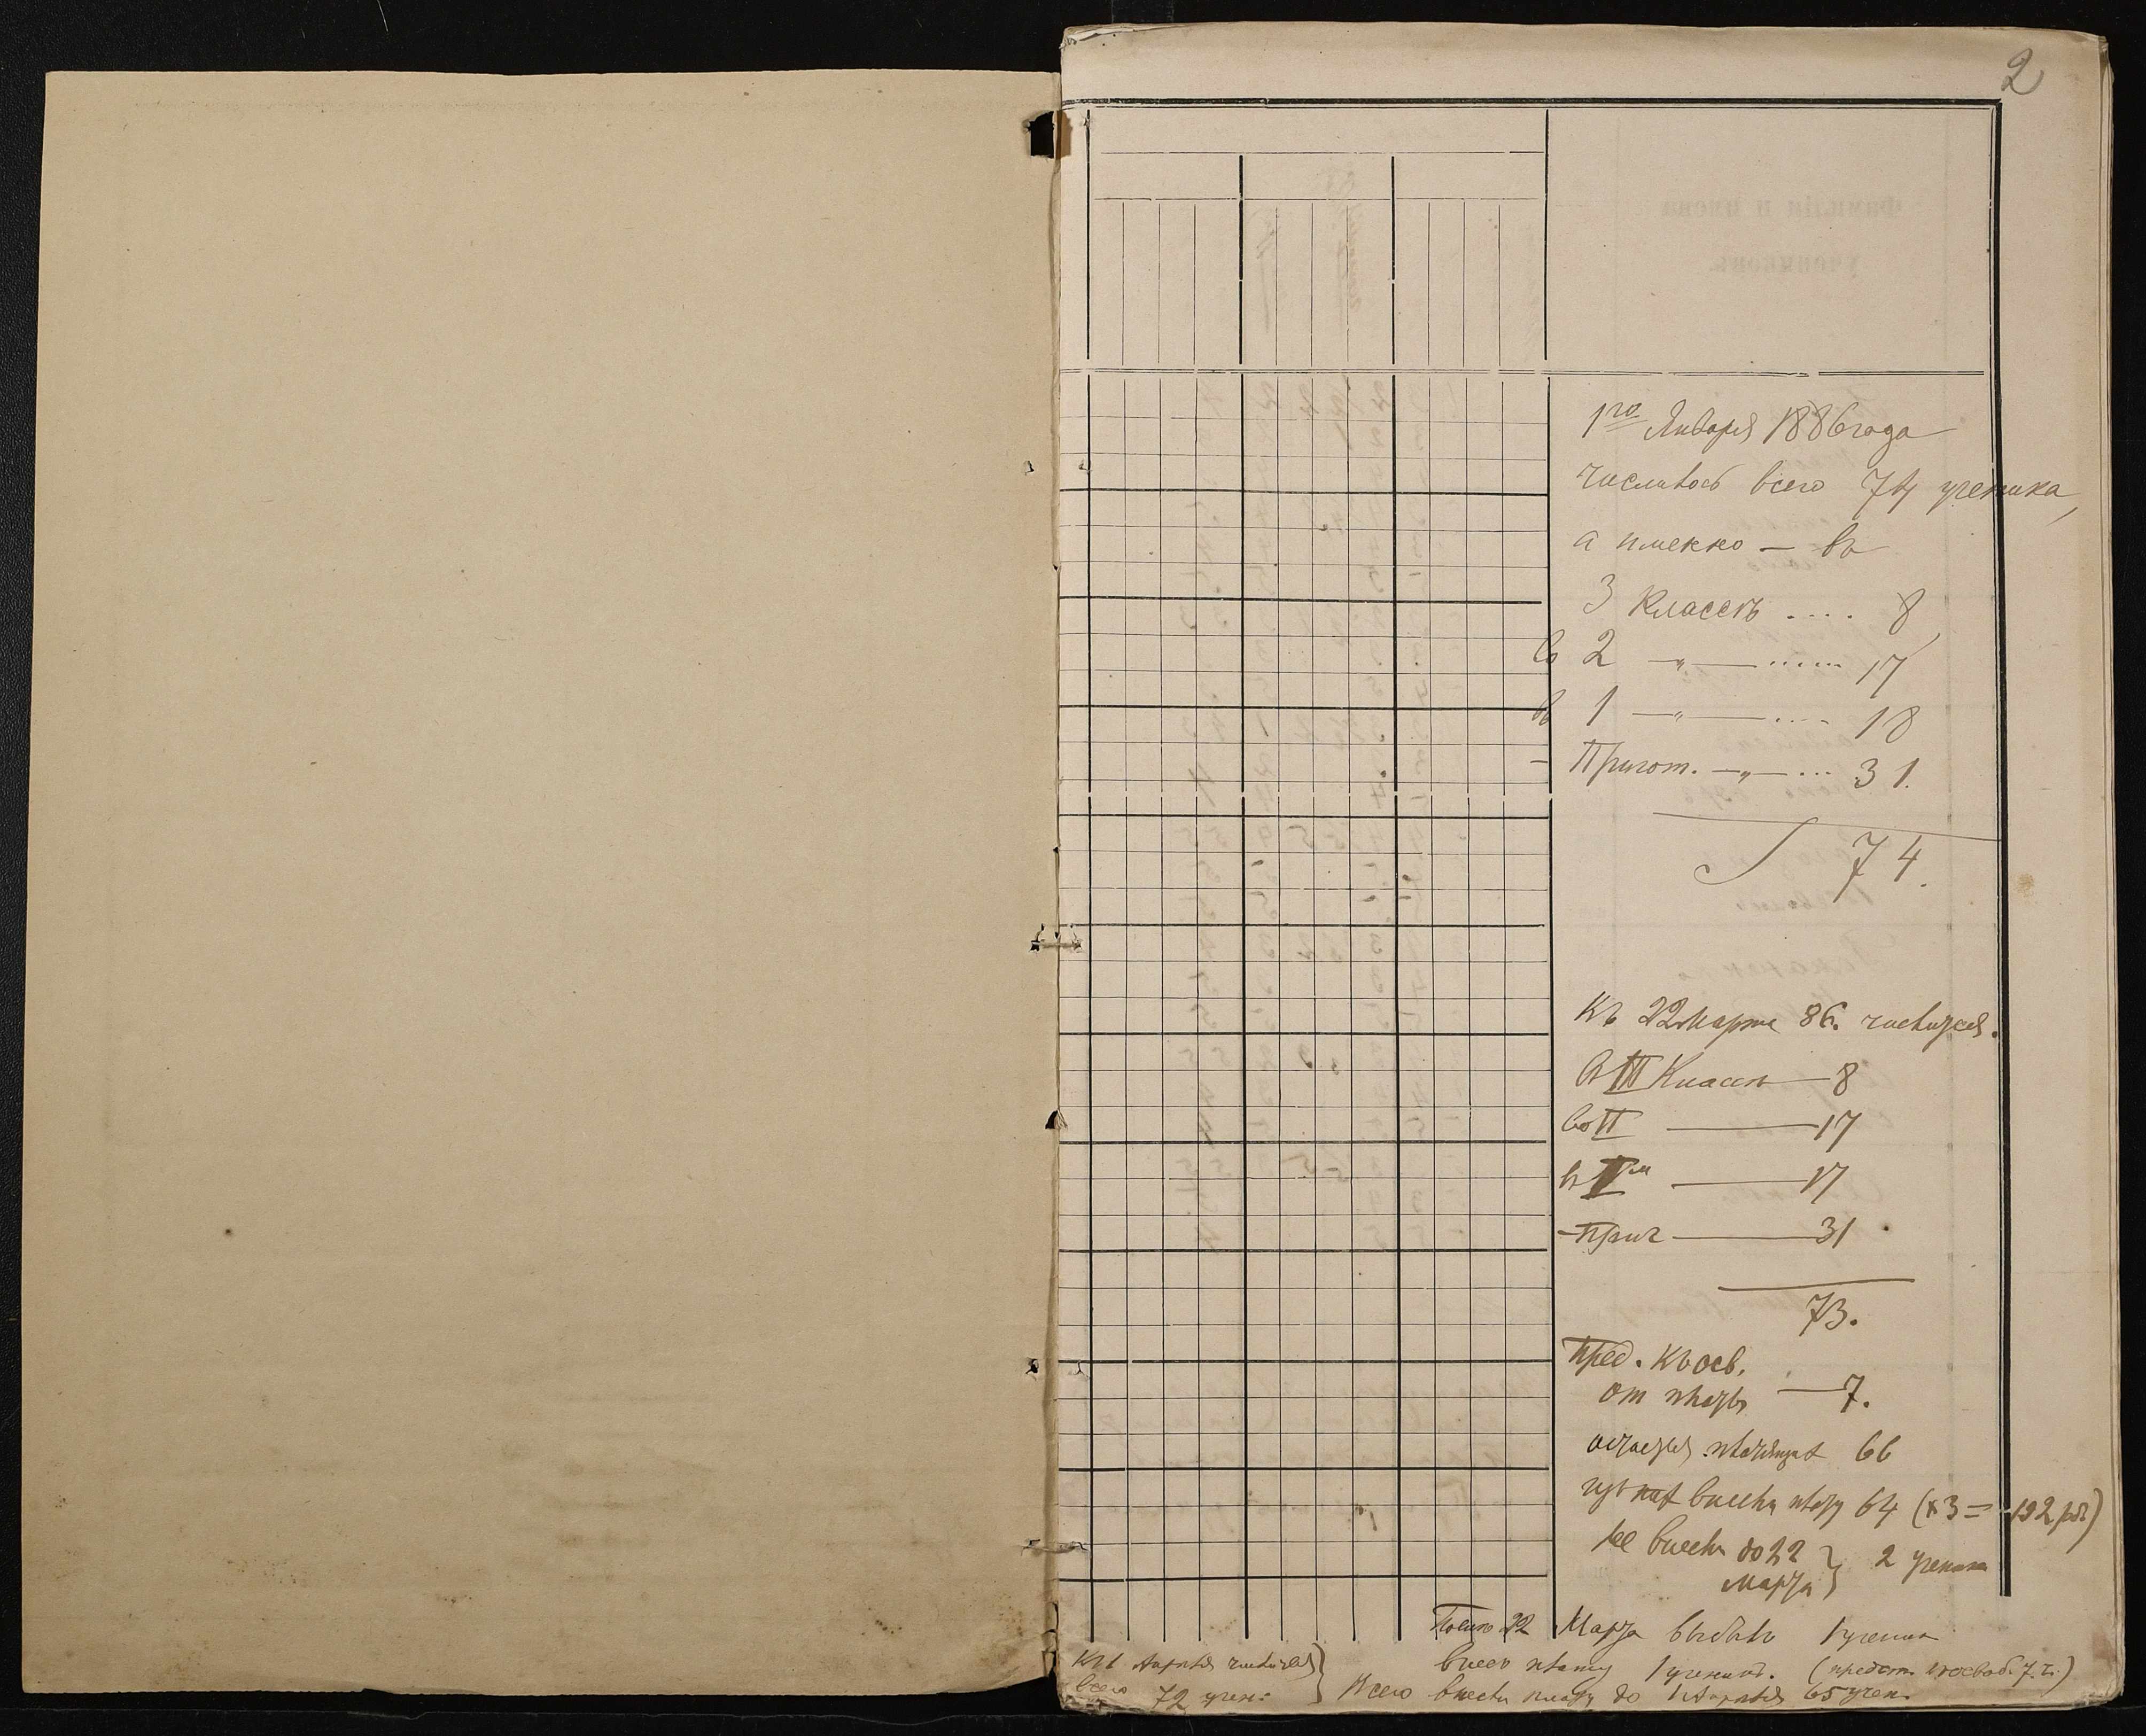 2
1го Января 1886 года
числилось всего 74 ученика,
а именно — въ
3 классѣ .... 8,
во 2 —„— ...... 17
въ 1 —„— .... 18
— Пригот. —„— ... 31.
74.
Къ 22 Марта 86. числится.
В III Классѣ — 8
во II — 17
въ I мъ — 17
— приг — 31
73.
Пред. къ осв.
от платы — 7.
остается платящихъ 66
изъ них внесли плату 64 (x3 = 192 руб)
Не внесли до 22 Марта } 2 ученика
После 22 Марта выбылъ 1 ученик
внесъ плату 1 ученикъ. (предст. к освоб. 7. ч.)
К 1 Апрѣля числилось
всего 72 учен: } Всего внесли плату до 1 Апрѣля 65 учен.